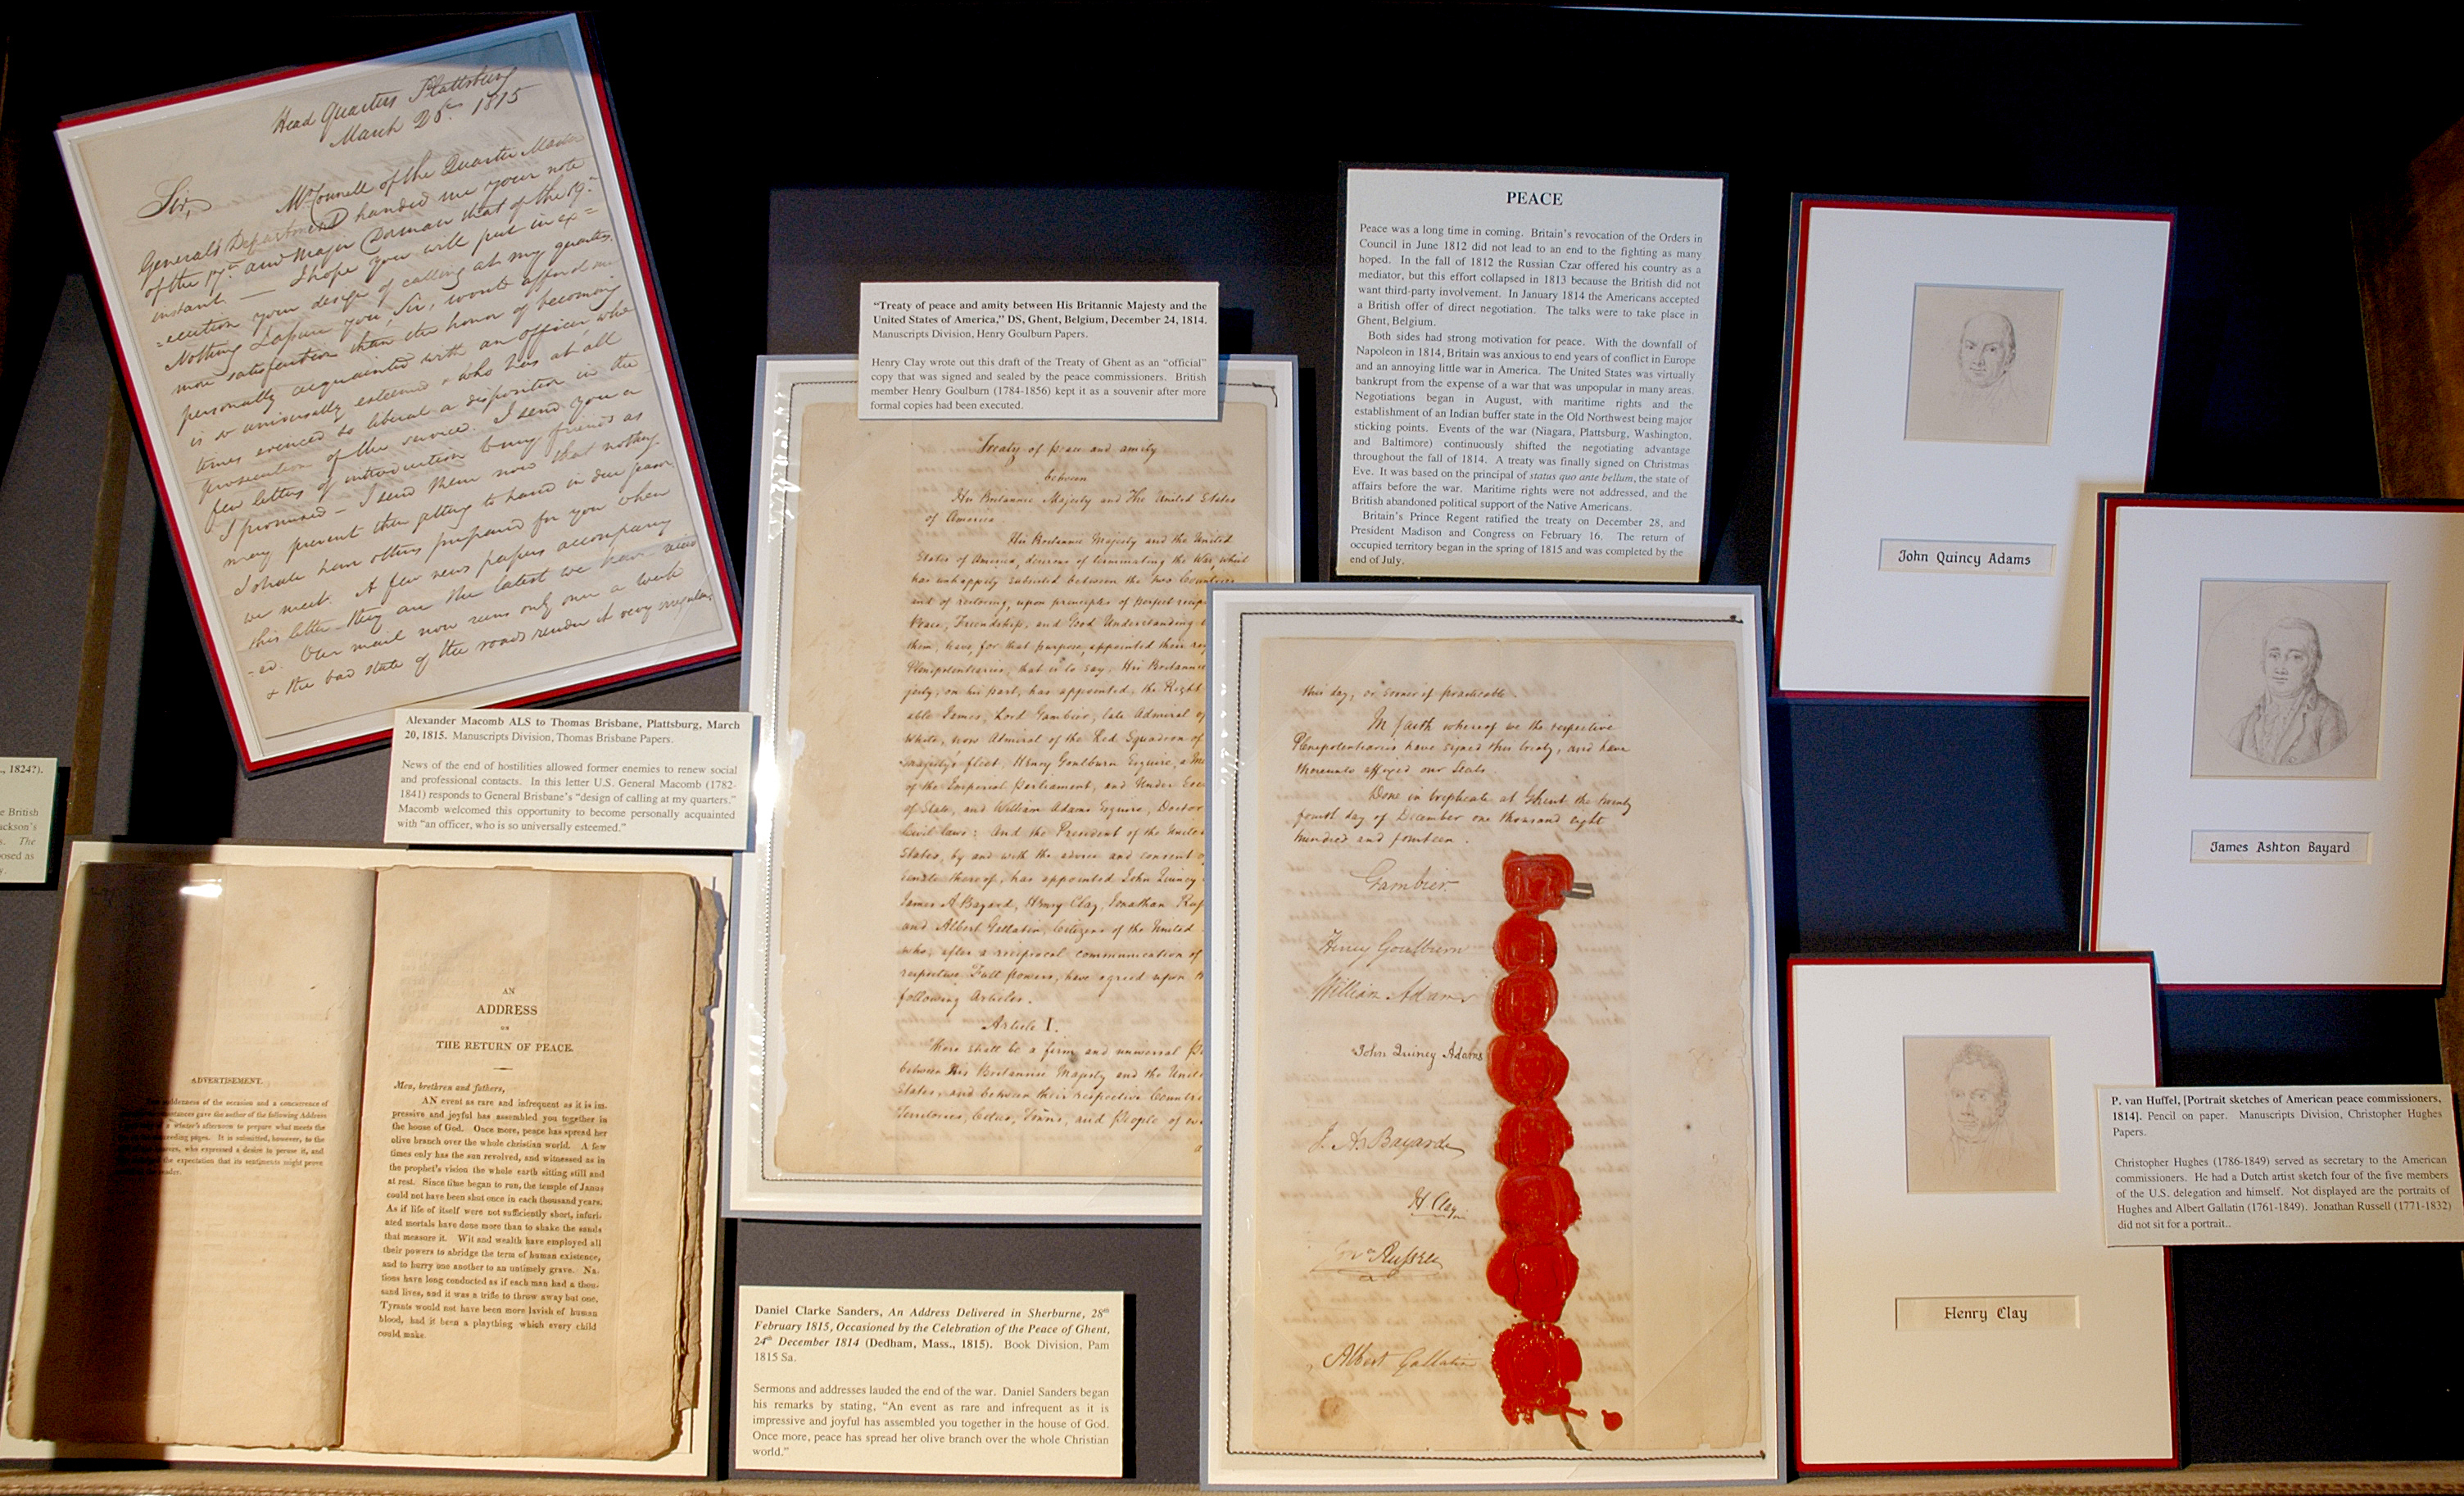 Head Quarters Plattsburg
March 20th. 1815
Sir,
McConnell of the Quarter Master
General's Department handed me your note
of the 17th. and Major Dorman that of the 19th.
instant — I hope you will put in ex=
=ecution your design of calling at my quarters.
Nothing I assure you, Sir, would afford me
more satisfaction than the honor of becoming
personally acquainted with an officer who
is so universally esteemed & who has at all
times evinced so liberal a disposition in the
prosecution of the service. I send you a
few letters of introduction to my friends as
I promised — I send them now that nothing
may prevent them getting to hand in due season
I shall have others prepared for you when
we meet. A few news papers accompany
this letter they are the latest we have recd
-ed. Our mail now runs only once a week
& the bad state of the roads render it very irregular,
Alexander Macomb ALS to Thomas Brisbane, Plattsburg, March
20, 1815. Manuscripts Division, Thomas Brisbane Papers.
News of the end of hostilities allowed former enemies to renew social
and professional contacts. In this letter U.S. General Macomb (1782-
1841) responds to General Brisbane's “design of calling at my quarters.”
Macomb welcomed this opportunity to become personally acquainted
with “an officer, who is so universally esteemed.”
., 1824?).
e British
ackson's
s. The
posed as
ADVERTISEMENT.
suddenness of the occasion and a concurrence of
gave the author of the following Address
winter's afternoon to prepare what meets the
pages. It is submitted, however, to the
who expressed a desire to peruse it, and
the expectation that its sentiments might prove
reader.
AN
ADDRESS
ON
THE RETURN OF PEACE.
Men, brethren and fathers,
AN event as rare and infrequent as it is im-
pressive and joyful has assembled you together in
the house of God. Once more, peace has spread her
olive branch over the whole christian world. A few
times only has the sun revolved, and witnessed as in
the prophet's vision the whole earth sitting still and
at rest. Since time began to run, the temple of Janus
could not have been shut once in each thousand years.
As if life of itself were not sufficiently short, infuri-
ated mortals have done more than to shake the sands
that measure it. Wit and wealth have employed all
their powers to abridge the term of human existence,
and to hurry one another to an untimely grave. Na-
tions have long conducted as if each man had a thou-
sand lives, and it was a trifle to throw away but one.
Tyrants would not have been more lavish of human
blood, had it been a plaything which every child
could make.
“Treaty of peace and amity between His Britannic Majesty and the
United States of America,” DS, Ghent, Belgium, December 24, 1814.
Manuscripts Division, Henry Goulburn Papers.
Henry Clay wrote out this draft of the Treaty of Ghent as an “official”
copy that was signed and sealed by the peace commissioners. British
member Henry Goulburn (1784-1856) kept it as a souvenir after more
formal copies had been executed.
Treaty of peace and amity
between
His Britannic Majesty and The United States
of America
His Britannic Majesty and the United
States of America, desirous of terminating the War, which
has unhappily subsisted between the two Countries
and of restoring, upon principles of perfect recip
Peace, Friendship, and Good Understanding
them, have, for that purpose, appointed their res
Plenipotentiaries, that is to say, His Britannic
jesty, on his part, has appointed the Right
able James, Lord Gambier, late Admiral of
White, now Admiral of the Red Squadron of
Majesty's fleet, Henry Goulburn Esquire, a Me
of the Imperial Parliament, and Under Secr
of State, and William Adams Esquire, Doctor
Civil laws: And the President of the United
States, by and with the advice and consent of
Senate thereof, has appointed John Quincy
James A Bayard, Henry Clay, Jonathan Rus
and Albert Gallatin, Citizens of the United
who, after a reciprocal communication of
respective Full powers, have agreed upon th
following Articles.
Article I.
There shall be a firm and universal Pe
between His Britannic Majesty and the Unite
States, and between their respective Countri
Territories, Cities, Towns, and People of ev
Daniel Clarke Sanders, An Address Delivered in Sherburne, 28th
February 1815, Occasioned by the Celebration of the Peace of Ghent,
24th December 1814 (Dedham, Mass., 1815). Book Division, Pam
1815 Sa.
Sermons and addresses lauded the end of the war. Daniel Sanders began
his remarks by stating, “An event as rare and infrequent as it is
impressive and joyful has assembled you together in the house of God.
Once more, peace has spread her olive branch over the whole Christian
world.”
PEACE
Peace was a long time in coming. Britain's revocation of the Orders in
Council in June 1812 did not lead to an end to the fighting as many
hoped. In the fall of 1812 the Russian Czar offered his country as a
mediator, but this effort collapsed in 1813 because the British did not
want third-party involvement. In January 1814 the Americans accepted
a British offer of direct negotiation. The talks were to take place in
Ghent, Belgium.
Both sides had strong motivation for peace. With the downfall of
Napoleon in 1814, Britain was anxious to end years of conflict in Europe
and an annoying little war in America. The United States was virtually
bankrupt from the expense of a war that was unpopular in many areas.
Negotiations began in August, with maritime rights and the
establishment of an Indian buffer state in the Old Northwest being major
sticking points. Events of the war (Niagara, Plattsburg, Washington,
and Baltimore) continuously shifted the negotiating advantage
throughout the fall of 1814. A treaty was finally signed on Christmas
Eve. It was based on the principal of status quo ante bellum, the state of
affairs before the war. Maritime rights were not addressed, and the
British abandoned political support of the Native Americans.
Britain's Prince Regent ratified the treaty on December 28, and
President Madison and Congress on February 16. The return of
occupied territory began in the spring of 1815 and was completed by the
end of July.
this day, or sooner if practicable
In faith whereof we the respective
Plenipotentiaries have signed this treaty, and have
thereunto affixed our Seals.
Done in triplicate at Ghent the twenty
fourth day of December one thousand eight
hundred and fourteen.
Gambier.
Henry Goulburn
William Adams
John Quincy Adams
J. A. Bayard
H. Clay
Jon.n Russell
Albert Gallatin
John Quincy Adams
James Ashton Bayard
Henry Clay
P. van Huffel, [Portrait sketches of American peace commissioners,
1814]. Pencil on paper. Manuscripts Division, Christopher Hughes
Papers.
Christopher Hughes (1786-1849) served as secretary to the American
commissioners. He had a Dutch artist sketch four of the five members
of the U.S. delegation and himself. Not displayed are the portraits of
Hughes and Albert Gallatin (1761-1849). Jonathan Russell (1771-1832)
did not sit for a portrait..